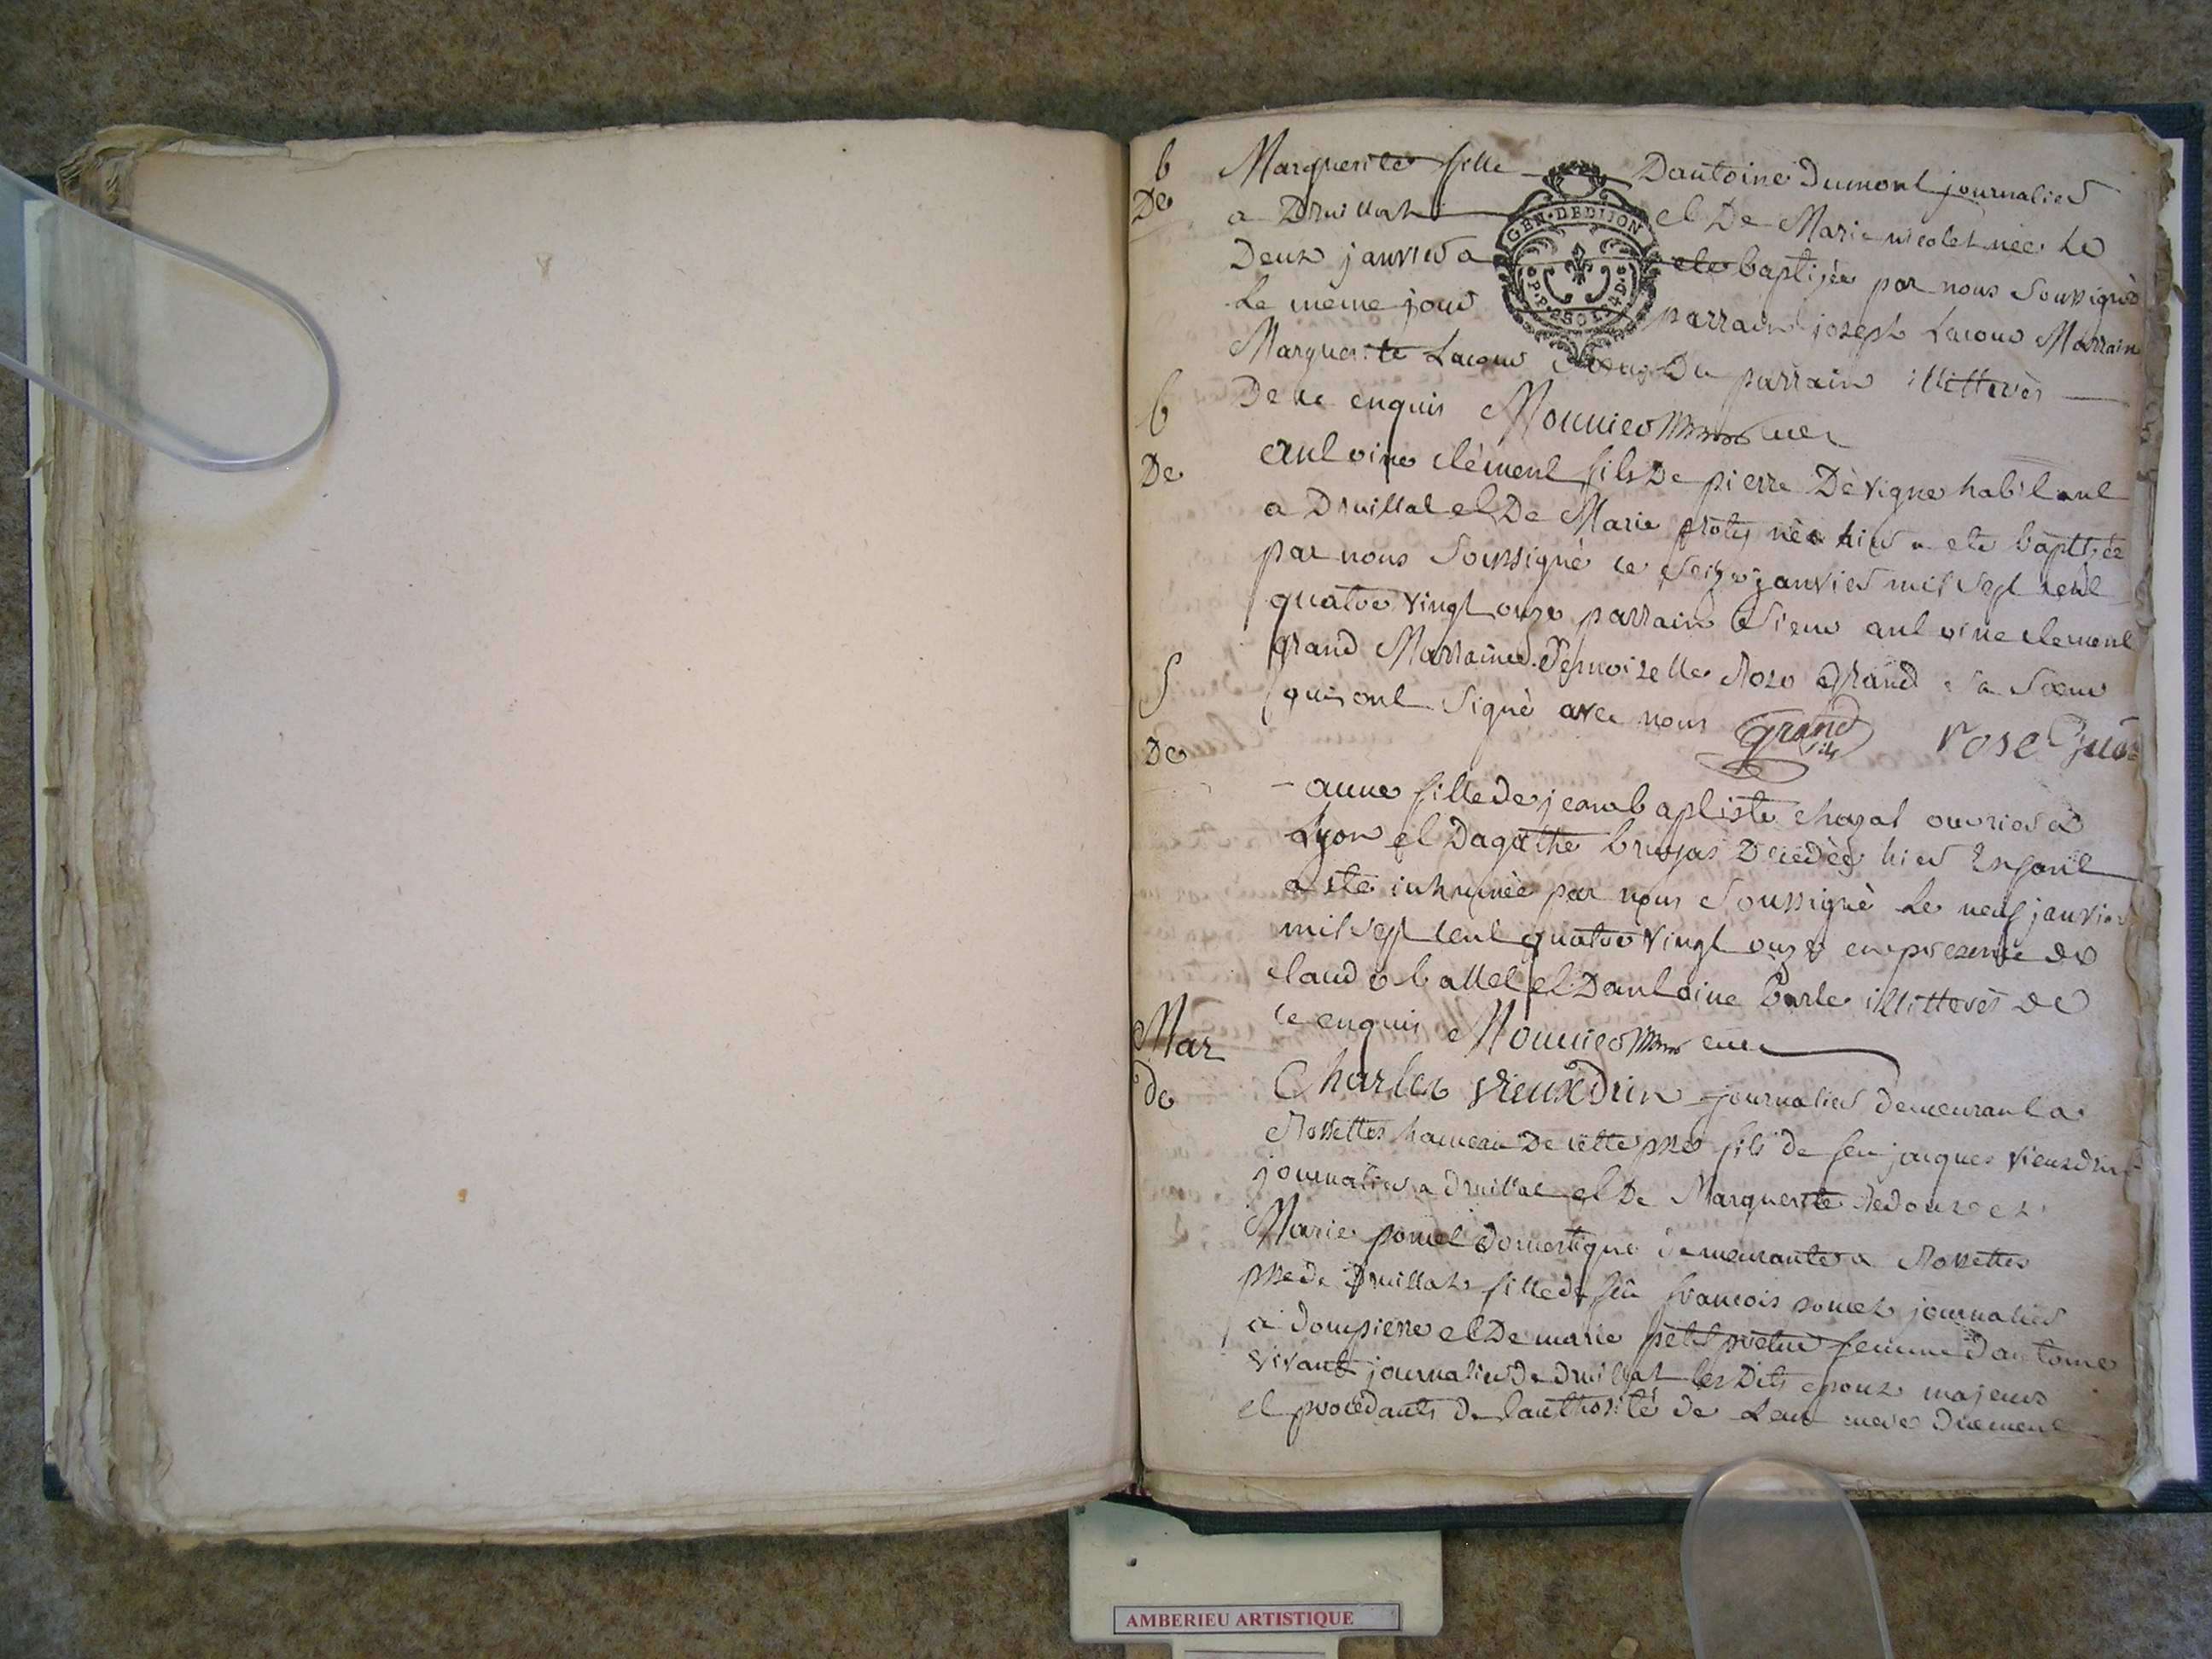 b
De
Marguerite fille Dantoine Dumont journalier
GEN·DEDIJON
a Druillat et De Marie nicolet née Le
Deux janvier a ete baptisée par nous Soussigné
Le meme jour parrain joseph Lacour Marrain
Marguerite Lacour Du parrain illitterès
De ce enquis Monnier curé
b
De
antoine clément fils De pierre Dèvigne habitant
a Druillat et De Marie née hier a ete baptisée
par nous Soussignè ce Seize janvier mil Sept cent
quatre vingt onze parrain Sieur antoine clement
grand Marraine Demoiselle Rose Grand Sa Soeur
qui ont Signè avec nous grand fils rose
S
De
anne fille de jean baptiste chazal ouvrier a
Lyon et Dagathe brujas Dècèdèe hier Enfant
a ete inhumèe par nous Soussignè Le neuf janvier
mil Sept cent quatre vingt onze en presence de
claude ballet et Dantoine illitterès de
ce enquis Monnier curé
Mar
de
Charles Vieuxdrin journalier demeurant a
Rossettes hameau De cette psse fils de feu jacques vieuxdrin
journalier a druillat et De Marguerite
Marie domestique demeurante a Rossettes
psse de Druillat fille de feu francois journalier
a dompierre et De marie petit femme dantoine
vivant journalier De druillat les Dits epoux majeurs
et procedants de lauthorité de Leur mere Duement
AMBERIEU ARTISTIQUE